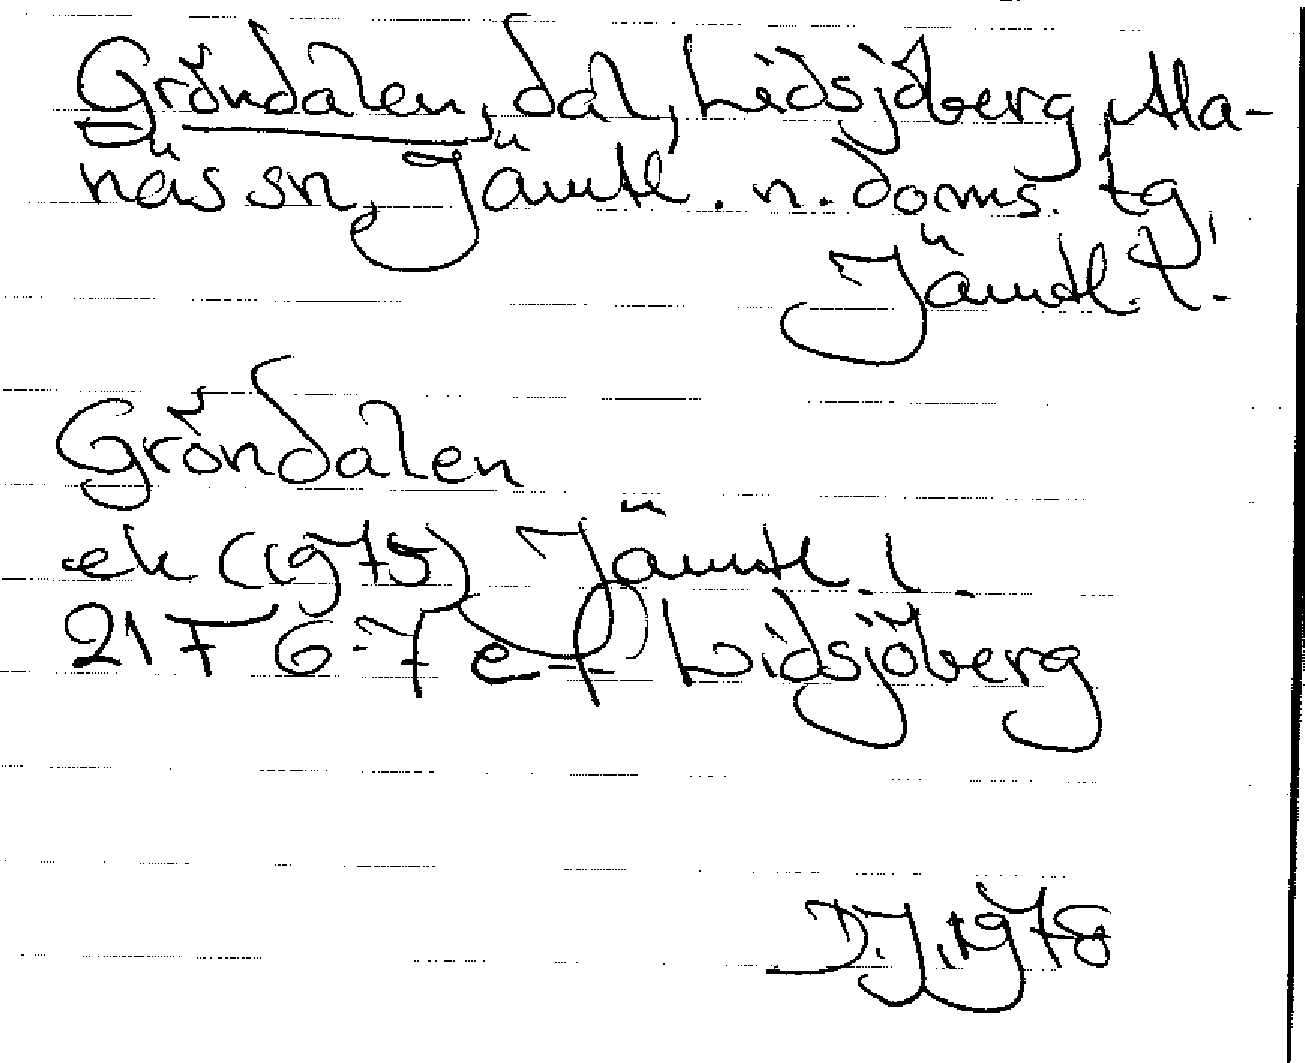 Gröndalen, dal, Lidsjöberg, Ala-
näs sn, Jämtl. n. doms. tg,
Jämtl. l.
Gröndalen
ek (1975) Jämtl. l.
21F 6-7 e-f Lidsjöberg
D.J. 1978